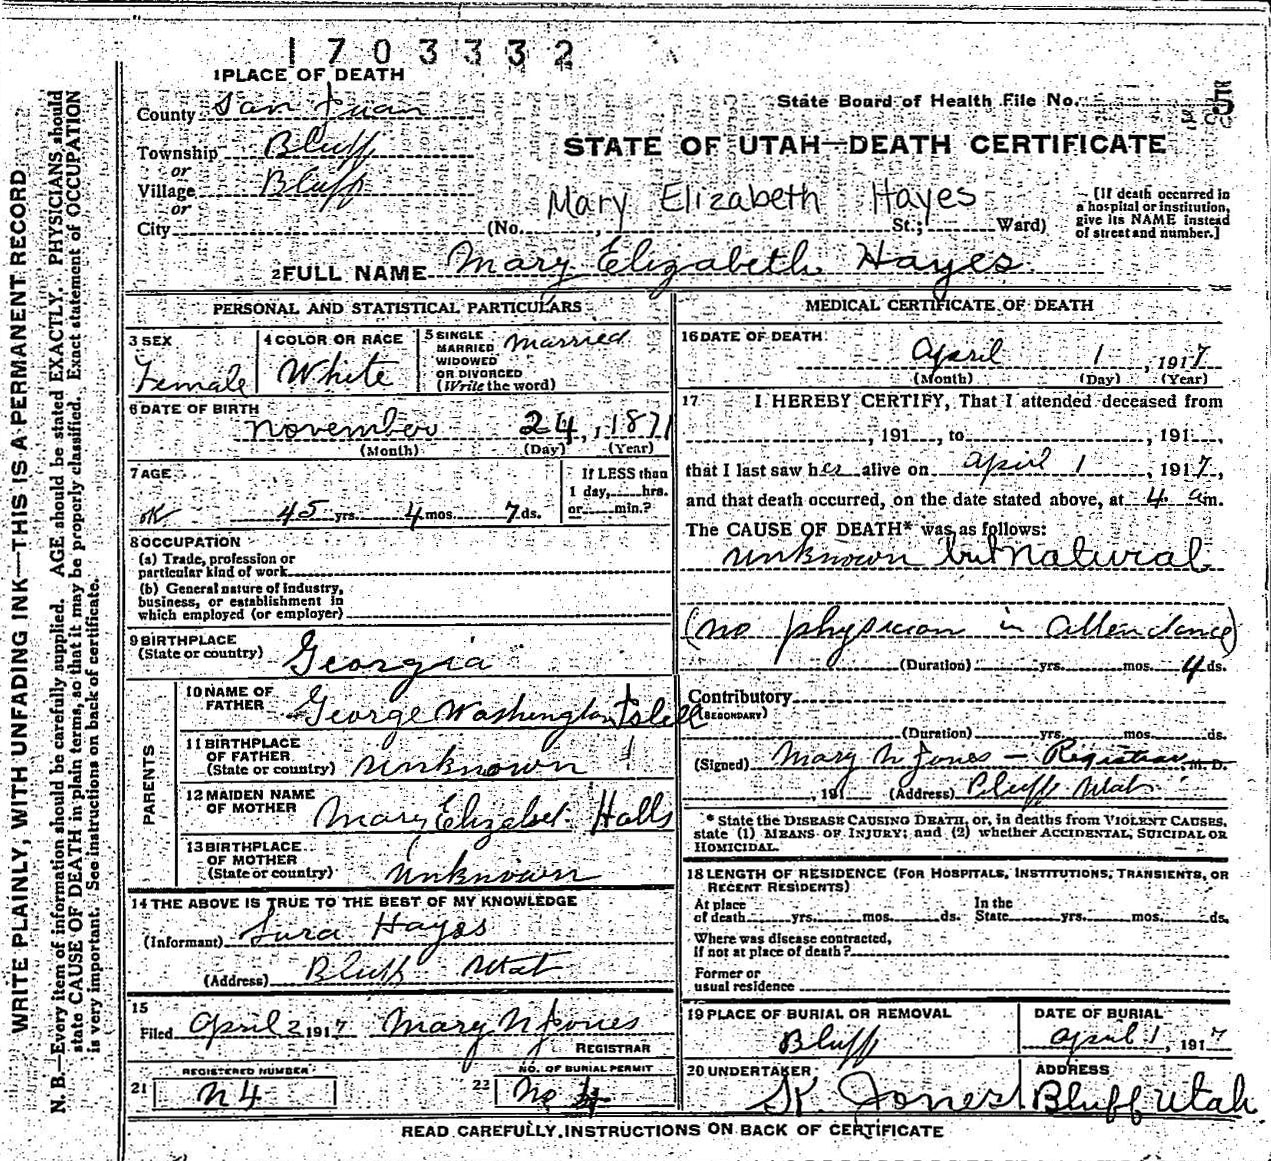 1703332
1 PLACE OF DEATH
County San Juan
State Board of Health File No. 5
Township Bluff
or
Village Bluff
or
City
STATE OF UTAH—DEATH CERTIFICATE
Mary Elizabeth Hayes
(No. , St.; Ward)
[If death occurred in
a hospital or institution,
give its NAME instead
of street and number.]
2 FULL NAME Mary Elizabeth Hayes
PERSONAL AND STATISTICAL PARTICULARS
3 SEX
Female
4 COLOR OR RACE
White
5 SINGLE
MARRIED
WIDOWED
OR DIVORCED
(Write the word)
Married
6 DATE OF BIRTH
November 24, 1871
(Month) (Day) (Year)
7 AGE
OK 45 yrs. 4 mos. 7 ds.
If LESS than
1 day, hrs.
or min.?
8 OCCUPATION
(a) Trade, profession or
particular kind of work
(b) General nature of industry,
business, or establishment in
which employed (or employer)
9 BIRTHPLACE
(State or country) Georgia
PARENTS
10 NAME OF
FATHER George Washington Isbell
11 BIRTHPLACE
OF FATHER
(State or country) unknown
12 MAIDEN NAME
OF MOTHER Mary Elizabet Halls
13 BIRTHPLACE
OF MOTHER
(State or country) unknown
14 THE ABOVE IS TRUE TO THE BEST OF MY KNOWLEDGE
(Informant) Hayes
(Address) Bluff Utah
15
Filed April 2 1917 Mary N Jones
REGISTRAR
REGISTERED NUMBER
21 N 4
NO. OF BURIAL PERMIT
22 No 4
MEDICAL CERTIFICATE OF DEATH
16 DATE OF DEATH
April 1, 1917
(Month) (Day) (Year)
17 I HEREBY CERTIFY, That I attended deceased from
, 191 , to , 191 ,
that I last saw her alive on April 1, 1917,
and that death occurred, on the date stated above, at 4 a m.
The CAUSE OF DEATH* was as follows:
unknown but Natural
(no physician in attendance)
(Duration) yrs. mos. 4 ds.
Contributory
(SECONDARY)
(Duration) yrs. mos. ds.
(Signed) Mary N Jones — Registrar M. D.
, 191 (Address) Bluff Utah
* State the DISEASE CAUSING DEATH, or, in deaths from VIOLENT CAUSES,
state (1) MEANS OF INJURY; and (2) whether ACCIDENTAL, SUICIDAL OR
HOMICIDAL.
18 LENGTH OF RESIDENCE (FOR HOSPITALS, INSTITUTIONS, TRANSIENTS, OR
RECENT RESIDENTS)
At place
of death yrs. mos. ds.
In the
State yrs. mos. ds.
Where was disease contracted,
if not at place of death?
Former or
usual residence
19 PLACE OF BURIAL OR REMOVAL
Bluff
DATE OF BURIAL
April 1, 1917
20 UNDERTAKER
K. Jones
ADDRESS
Bluff Utah
READ CAREFULLY INSTRUCTIONS ON BACK OF CERTIFICATE
WRITE PLAINLY, WITH UNFADING INK—THIS IS A PERMANENT RECORD
N. B.—Every item of information should be carefully supplied. AGE should be stated EXACTLY. PHYSICIANS should
state CAUSE OF DEATH in plain terms, so that it may be properly classified. Exact statement of OCCUPATION
is very important. See instructions on back of certificate.